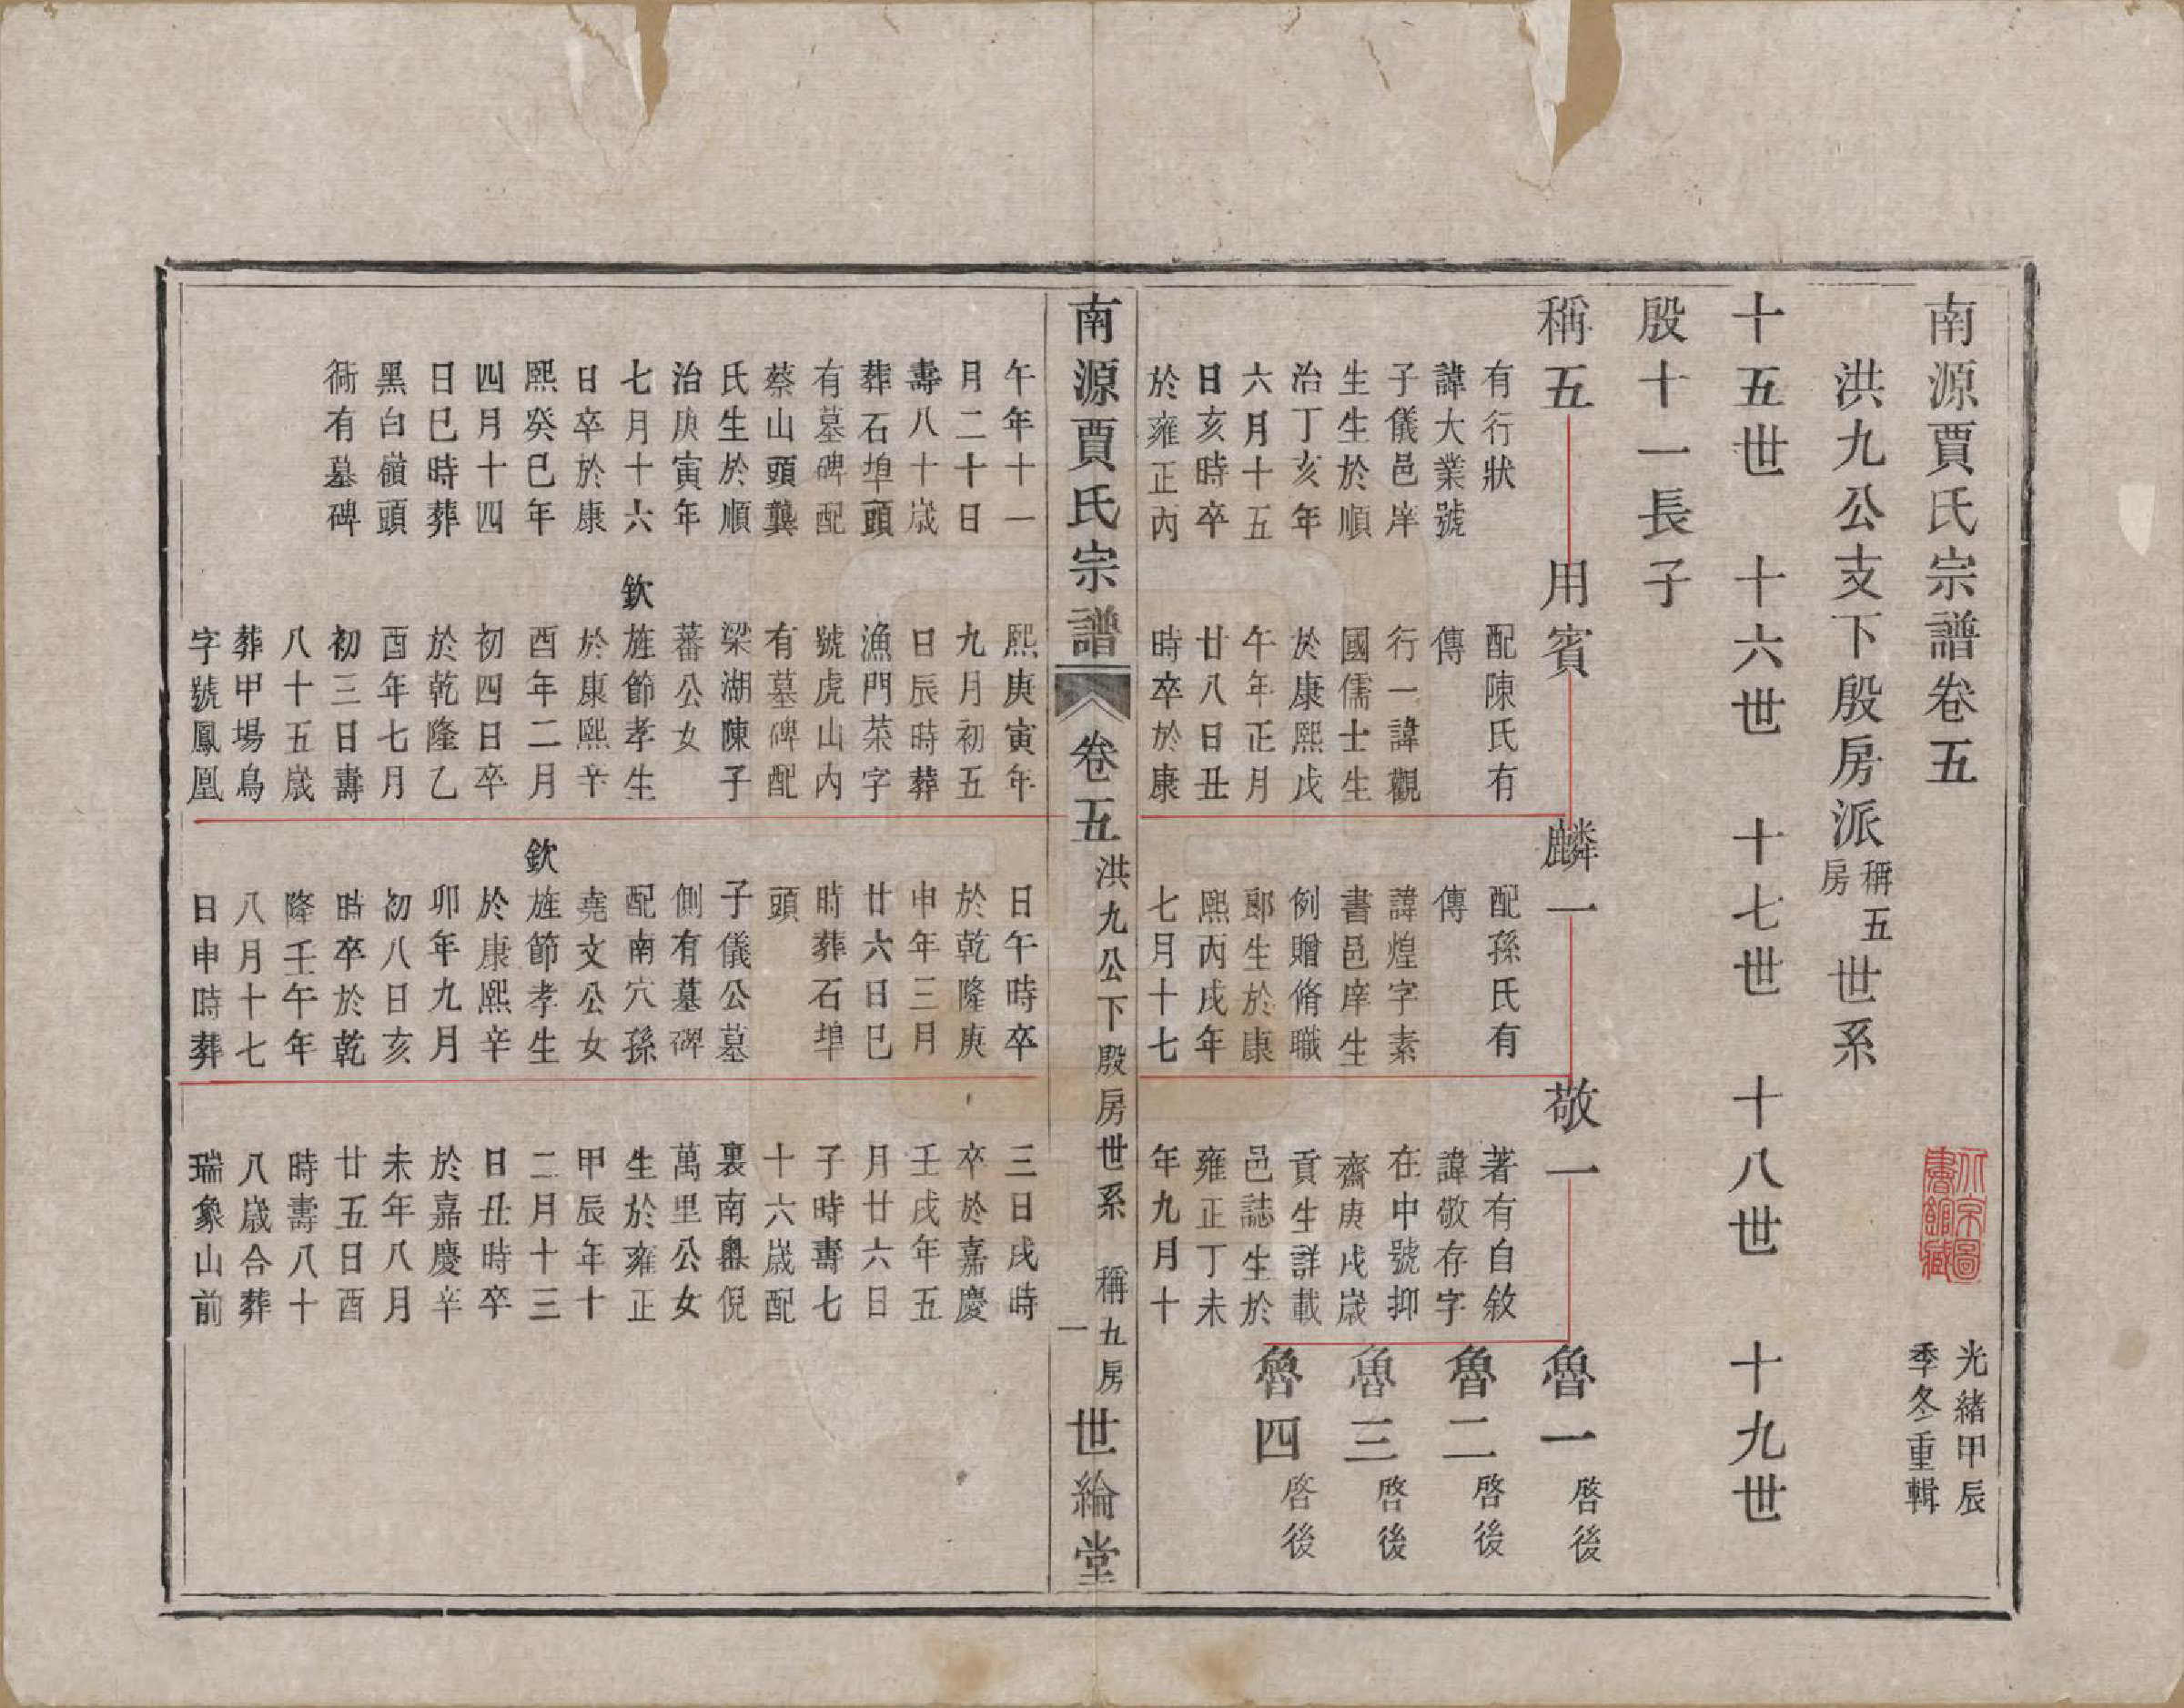 南源賈氏宗譜卷五
光緒甲辰
季冬重輯
洪九公支下殷房派
稱五
房
世系
十五世 十六世 十七世 十八世 十九世
殷十一長子
稱五
有行狀
諱大業號
子儀邑庠
生生於順
治丁亥年
六月十五
日亥時卒
於雍正丙
午年十一
月二十日
壽八十歲
葬石埠頭
有墓碑配
蔡山頭龔
氏生於順
治庚寅年
七月十六
日卒於康
熙癸巳年
四月十四
日巳時葬
黑白嶺頭
衕有墓碑
用賓
配陳氏有
傳
行一諱觀
國儒士生
於康熙戊
午年正月
廿八日丑
時卒於康
熙庚寅年
九月初五
日辰時葬
漁門菜字
號虎山內
有墓碑配
梁湖陳子
蕃公女
欽旌節孝生
於康熙辛
酉年二月
初四日卒
於乾隆乙
酉年七月
初三日壽
八十五歲
葬甲場鳥
字號鳳凰
麟一
配孫氏有
傳
諱煌字素
書邑庠生
例贈脩職
郎生於康
熙丙戌年
七月十七
日午時卒
於乾隆庚
申年三月
廿六日巳
時葬石埠
頭
子儀公墓
側有墓碑
配南穴孫
堯文公女
欽旌節孝生
於康熙辛
卯年九月
初八日亥
時卒於乾
隆壬午年
八月十七
日申時葬
敬一
著有自敘
諱敬存字
在中號抑
齋庚戌歲
貢生詳載
邑誌生於
雍正丁未
年九月十
三日戌時
卒於嘉慶
壬戌年五
月廿六日
子時壽七
十六歲配
裏南嶴倪
萬里公女
生於雍正
甲辰年十
二月十三
日丑時卒
於嘉慶辛
未年八月
廿五日酉
時壽八十
八歲合葬
瑞象山前
魯一 啓後
魯二 啓後
魯三 啓後
魯四 啓後
南源賈氏宗譜 卷五 洪九公下殷房世系 稱五房 一 世綸堂